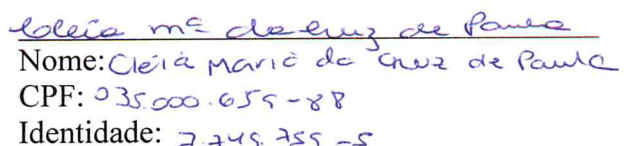 Cleia Mª da Cruz de Paula
Nome: Cleia Maria da Cruz de Paula
CPF: 035.000.659-88
Identidade: 7.749.759-5